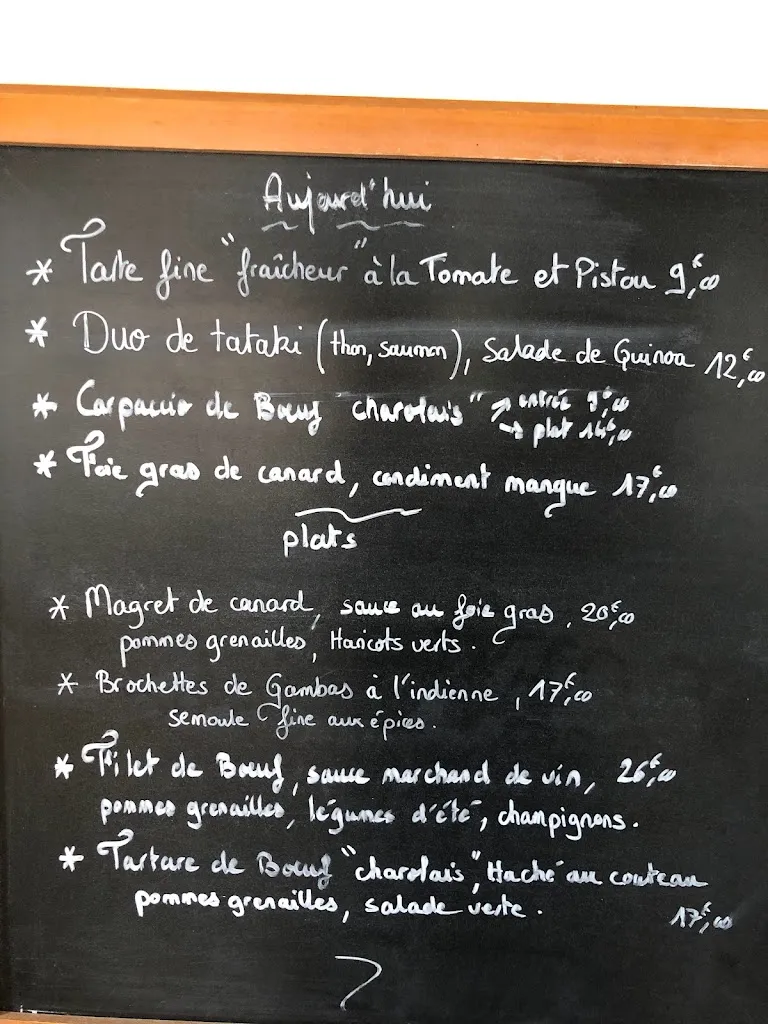 Aujourd'hui
* Tarte fine "fraîcheur" à la Tomate et Pistou 9€,00
* Duo de tataki (thon, saumon), Salade de Quinoa 12€,00
* Carpaccio de Bœuf charolais" → entrée 9€,00
→ plat 14€,00
* Foie gras de canard, condiment mangue 17€,00
plats
* Magret de canard, sauce au foie gras, 20€,00
pommes grenailles, Haricots verts.
* Brochettes de Gambas à l'indienne, 17€,00
semoule fine aux épices.
* Filet de Bœuf, sauce marchand de vin, 26€,00
pommes grenailles, légumes d'été, champignons.
* Tartare de Bœuf "charolais", Haché au couteau
pommes grenailles, salade verte.
17€,00